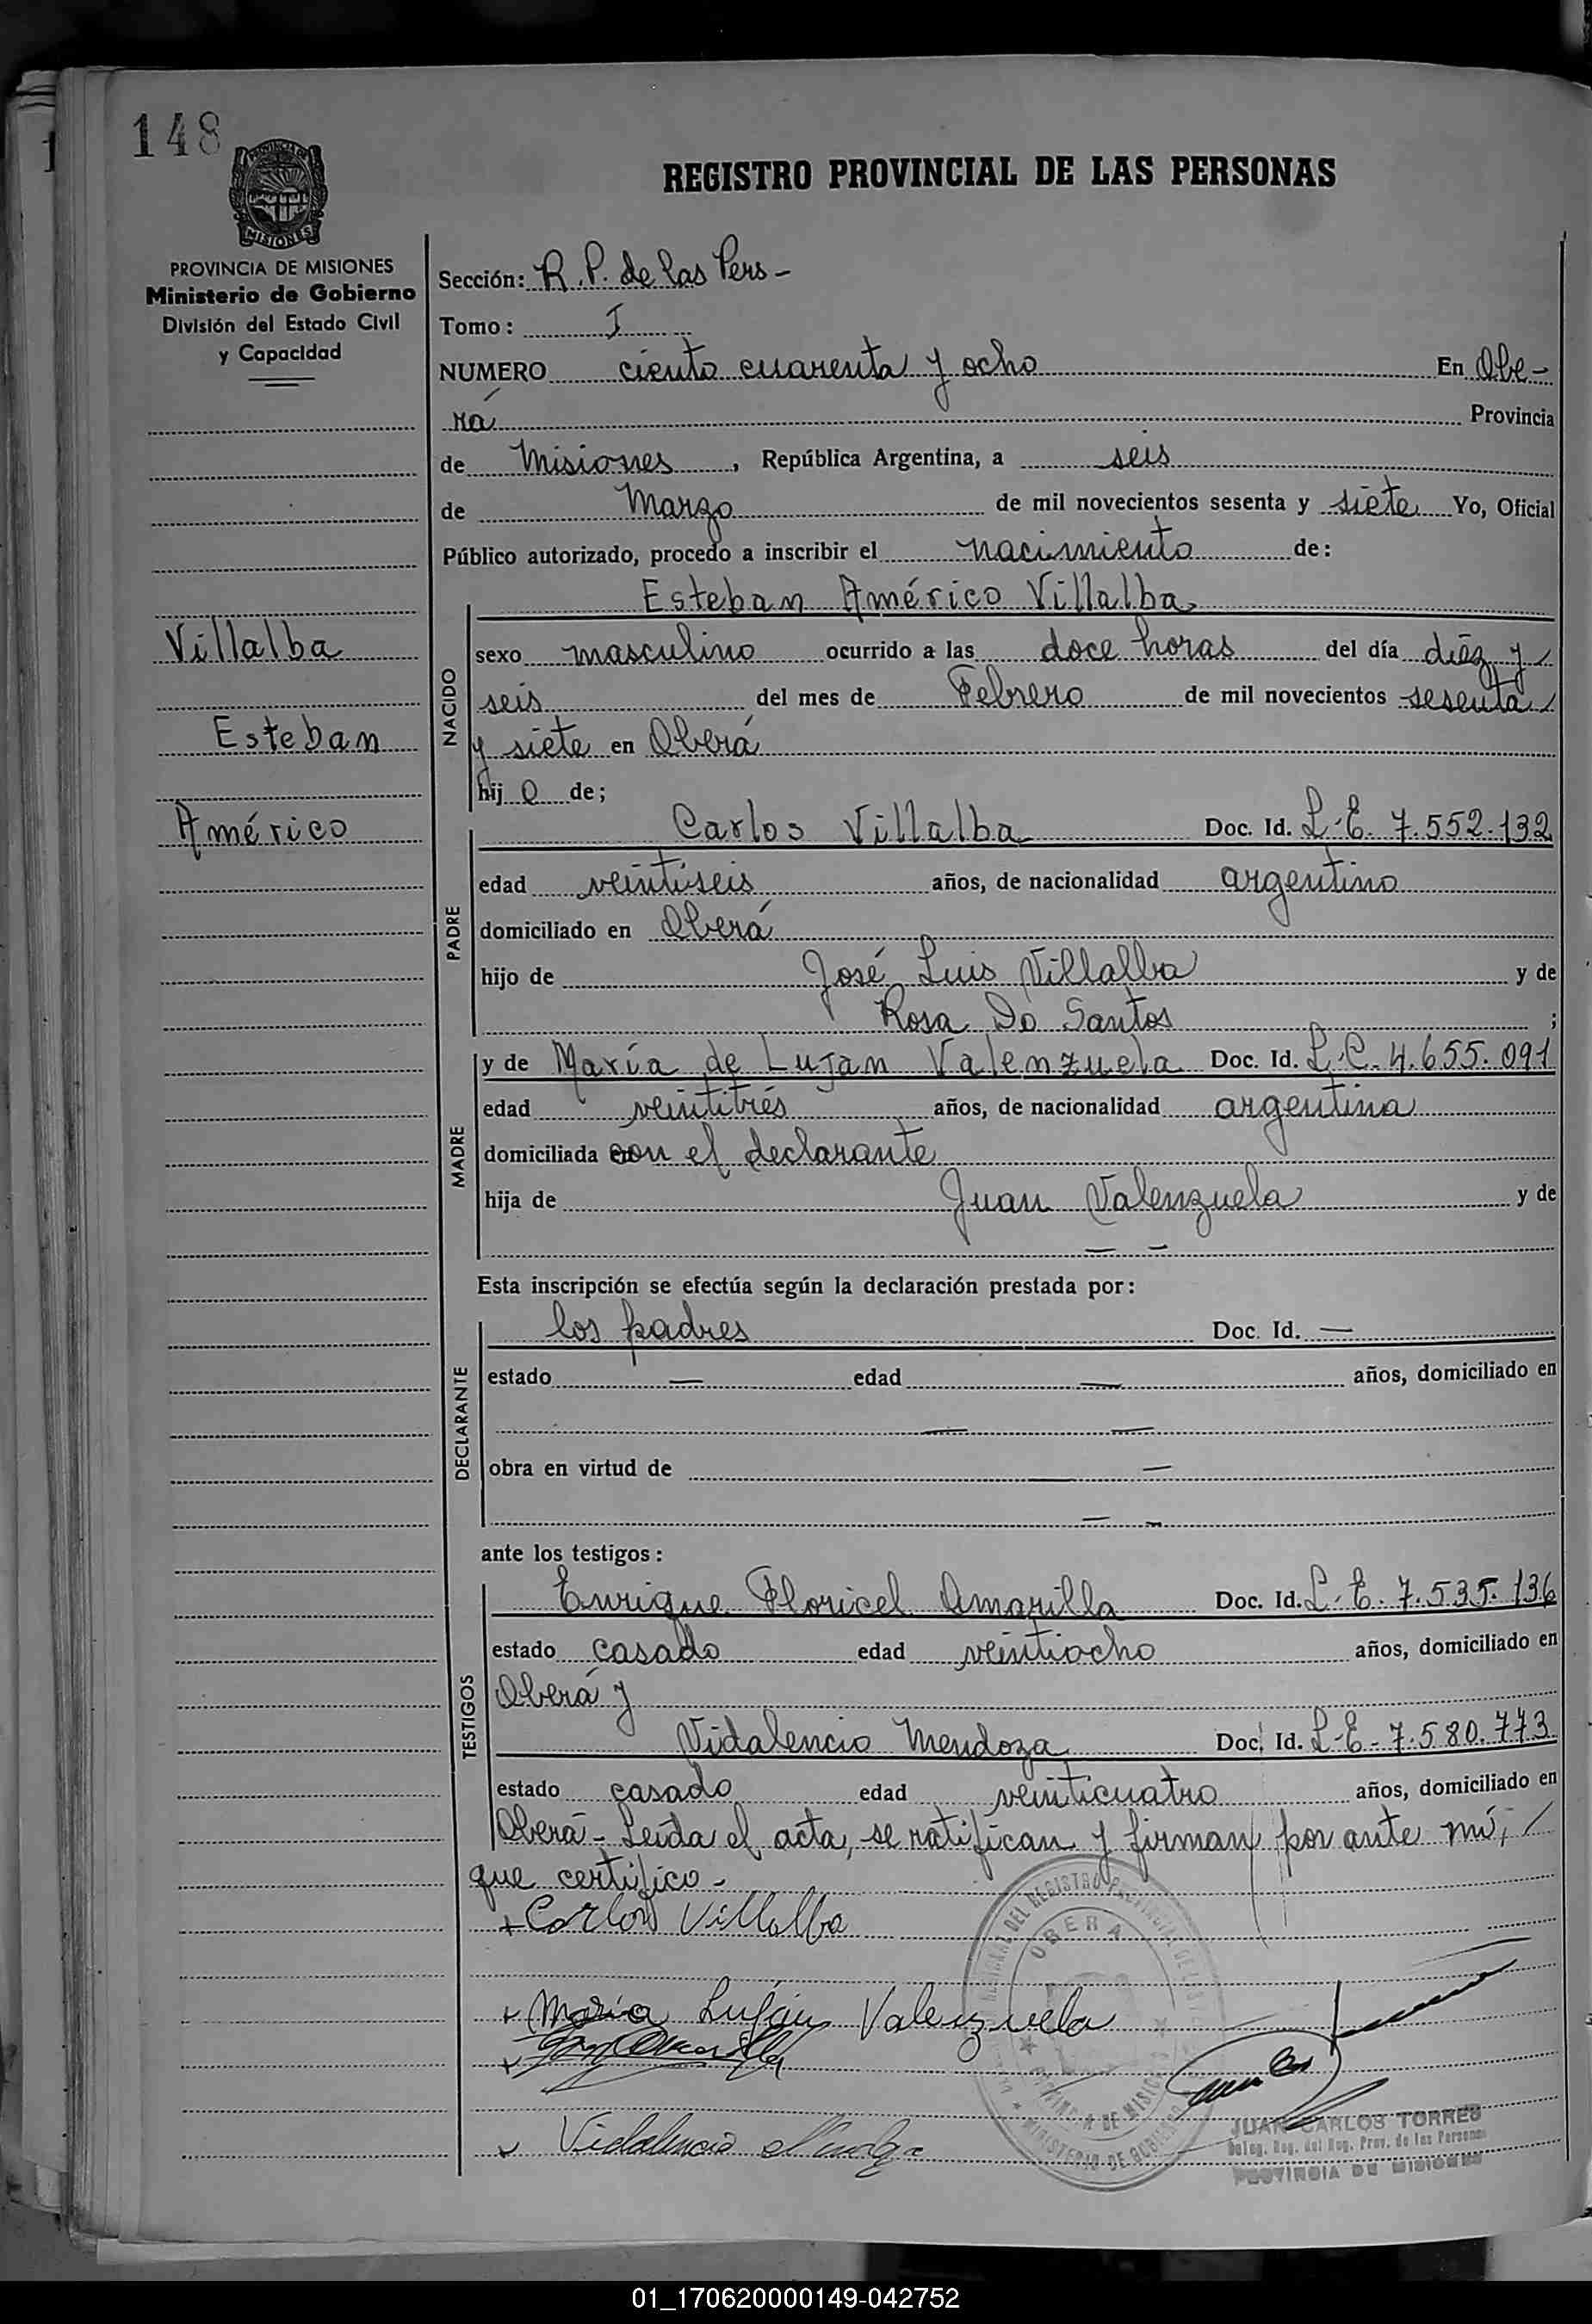 148
PROVINCIA DE
MISIONES
REGISTRO PROVINCIAL DE LAS PERSONAS
PROVINCIA DE MISIONES
Ministerio de Gobierno
División del Estado Civil
y Capacidad
Villalba
Esteban
Américo
Sección: R.P. de las Pers-
Tomo: I
NUMERO ciento cuarenta y ocho En Obe-
rá Provincia
de Misiones, República Argentina, a seis
de Marzo de mil novecientos sesenta y siete Yo, Oficial
Público autorizado, procedo a inscribir el nacimiento de:
Esteban Américo Villalba
NACIDO
sexo masculino ocurrido a las doce horas del día diez y
seis del mes de Febrero de mil novecientos sesenta
y siete en Oberá
hijo de;
PADRE
Carlos Villalba Doc. Id. L.E. 7.552.132
edad veintiseis años, de nacionalidad argentino
domiciliado en Oberá
hijo de José Luis Villalba y de
Rosa Do Santos ;
MADRE
y de María de Lujan Valenzuela Doc. Id. L.C. 4.655.091
edad veintitrés años, de nacionalidad argentina
domiciliada con el declarante
hija de Juan Valenzuela y de
— —
Esta inscripción se efectúa según la declaración prestada por:
DECLARANTE
los padres Doc. Id. —
estado — edad — años, domiciliado en
— —
obra en virtud de — —
— —
ante los testigos:
TESTIGOS
Enrique Floricel Amarilla Doc. Id. L.E. 7.535.136
estado casado edad veintiocho años, domiciliado en
Oberá y
Vidalencio Mendoza Doc. Id. L.E. 7.580.773
estado casado edad veinticuatro años, domiciliado en
Oberá - Leída el acta, se ratifican y firman por ante mí,
que certifico.-
Carlos Villalba
María Luján Valenzuela
Vidalencio
OBERA
JUAN CARLOS TORRES
Deleg. Reg. del Reg. Prov. de las Personas
PROVINCIA DE MISIONES
01_170620000149-042752